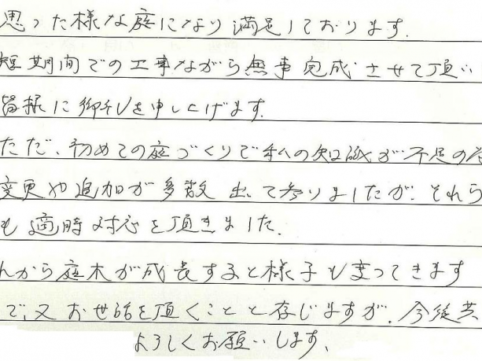 思った様な庭になり満足しております。
短期間での工事ながら無事完成させて頂い
皆様に御礼を申し上げます。
ただ、初めての庭づくりで私の知識が不足の為
変更や追加が多数出て参りましたが、それら
も適時対応を頂きました。
んから庭木が成長すると様子も変ってきます
で、又お世話を頂くことと存じますが、今後共
よろしくお願いします、